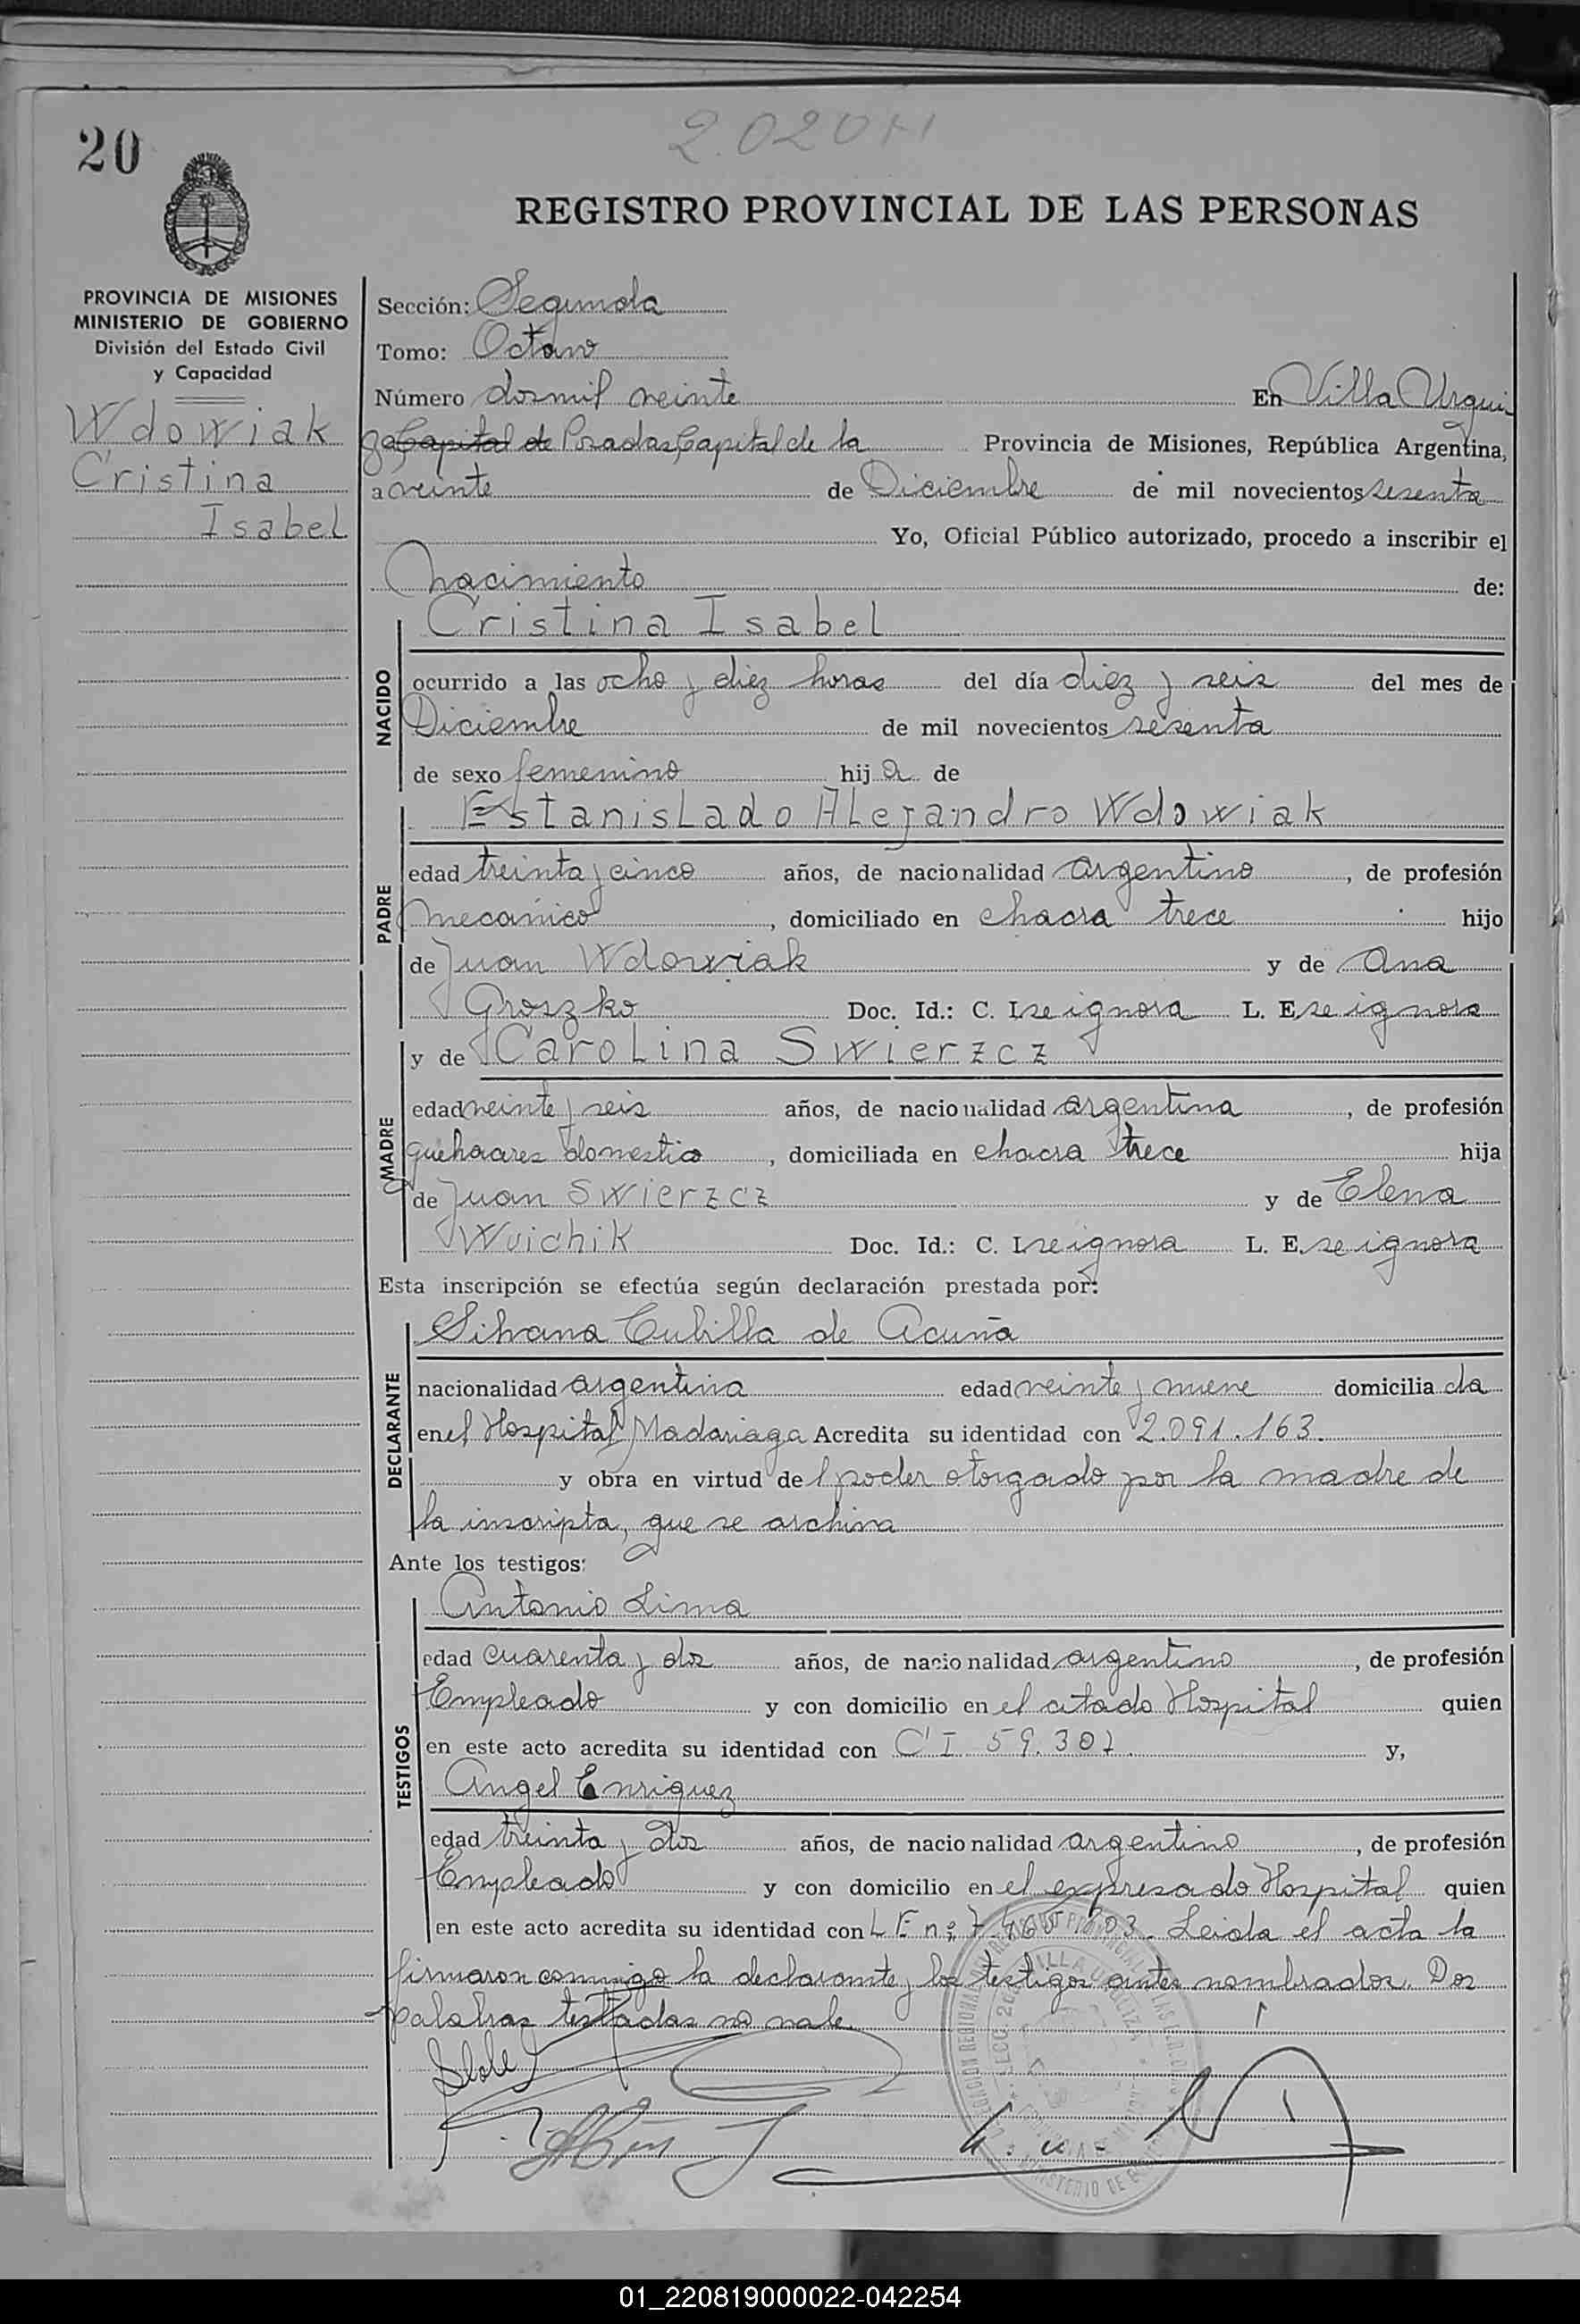 20
2.020
REGISTRO PROVINCIAL DE LAS PERSONAS
PROVINCIA DE MISIONES
MINISTERIO DE GOBIERNO
División del Estado Civil
y Capacidad
Wdowiak
Cristina
Isabel
Sección: Segunda
Tomo: Octavo
Número dosmil veinte En Villa Urqui
za Capital de Posadas Capital de la Provincia de Misiones, República Argentina,
a veinte de Diciembre de mil novecientos sesenta
Yo, Oficial Público autorizado, procedo a inscribir el
Nacimiento de:
NACIDO
Cristina Isabel
ocurrido a las ocho y diez horas del día diez y seis del mes de
Diciembre de mil novecientos sesenta
de sexo femenino hija de
PADRE
Estanislado Alejandro Wdowiak
edad treinta y cinco años, de nacionalidad argentino, de profesión
mecánico, domiciliado en chacra trece hijo
de Juan Wdowiak y de Ana
Groszko Doc. Id.: C. I. se ignora L. E. se ignora
MADRE
y de Carolina Swierzcz
edad veinte y seis años, de nacionalidad argentina, de profesión
quehaceres domestico, domiciliada en chacra trece hija
de Juan Swierzcz y de Elena
Wuichik Doc. Id.: C. I. se ignora L. E. se ignora
Esta inscripción se efectúa según declaración prestada por:
DECLARANTE
Silvana Cubilla de Acuña
nacionalidad argentina edad veinte y nueve domiciliada
en el Hospital Madariaga Acredita su identidad con 2.091.163.
y obra en virtud del poder otorgado por la madre de
la inscripta, que se archiva
Ante los testigos:
TESTIGOS
Antonio Lima
edad cuarenta y dos años, de nacionalidad argentino, de profesión
Empleado y con domicilio en el citado Hospital quien
en este acto acredita su identidad con C I 59.302. y,
Angel Enriquez
edad treinta y dos años, de nacionalidad argentino, de profesión
Empleado y con domicilio en el expresado Hospital quien
en este acto acredita su identidad con L E nº 7.460.803. Leida el acta la
firmaron conmigo la declarante y los testigos antes nombrados. Dos
palabras testadas no vale.
01_220819000022-042254